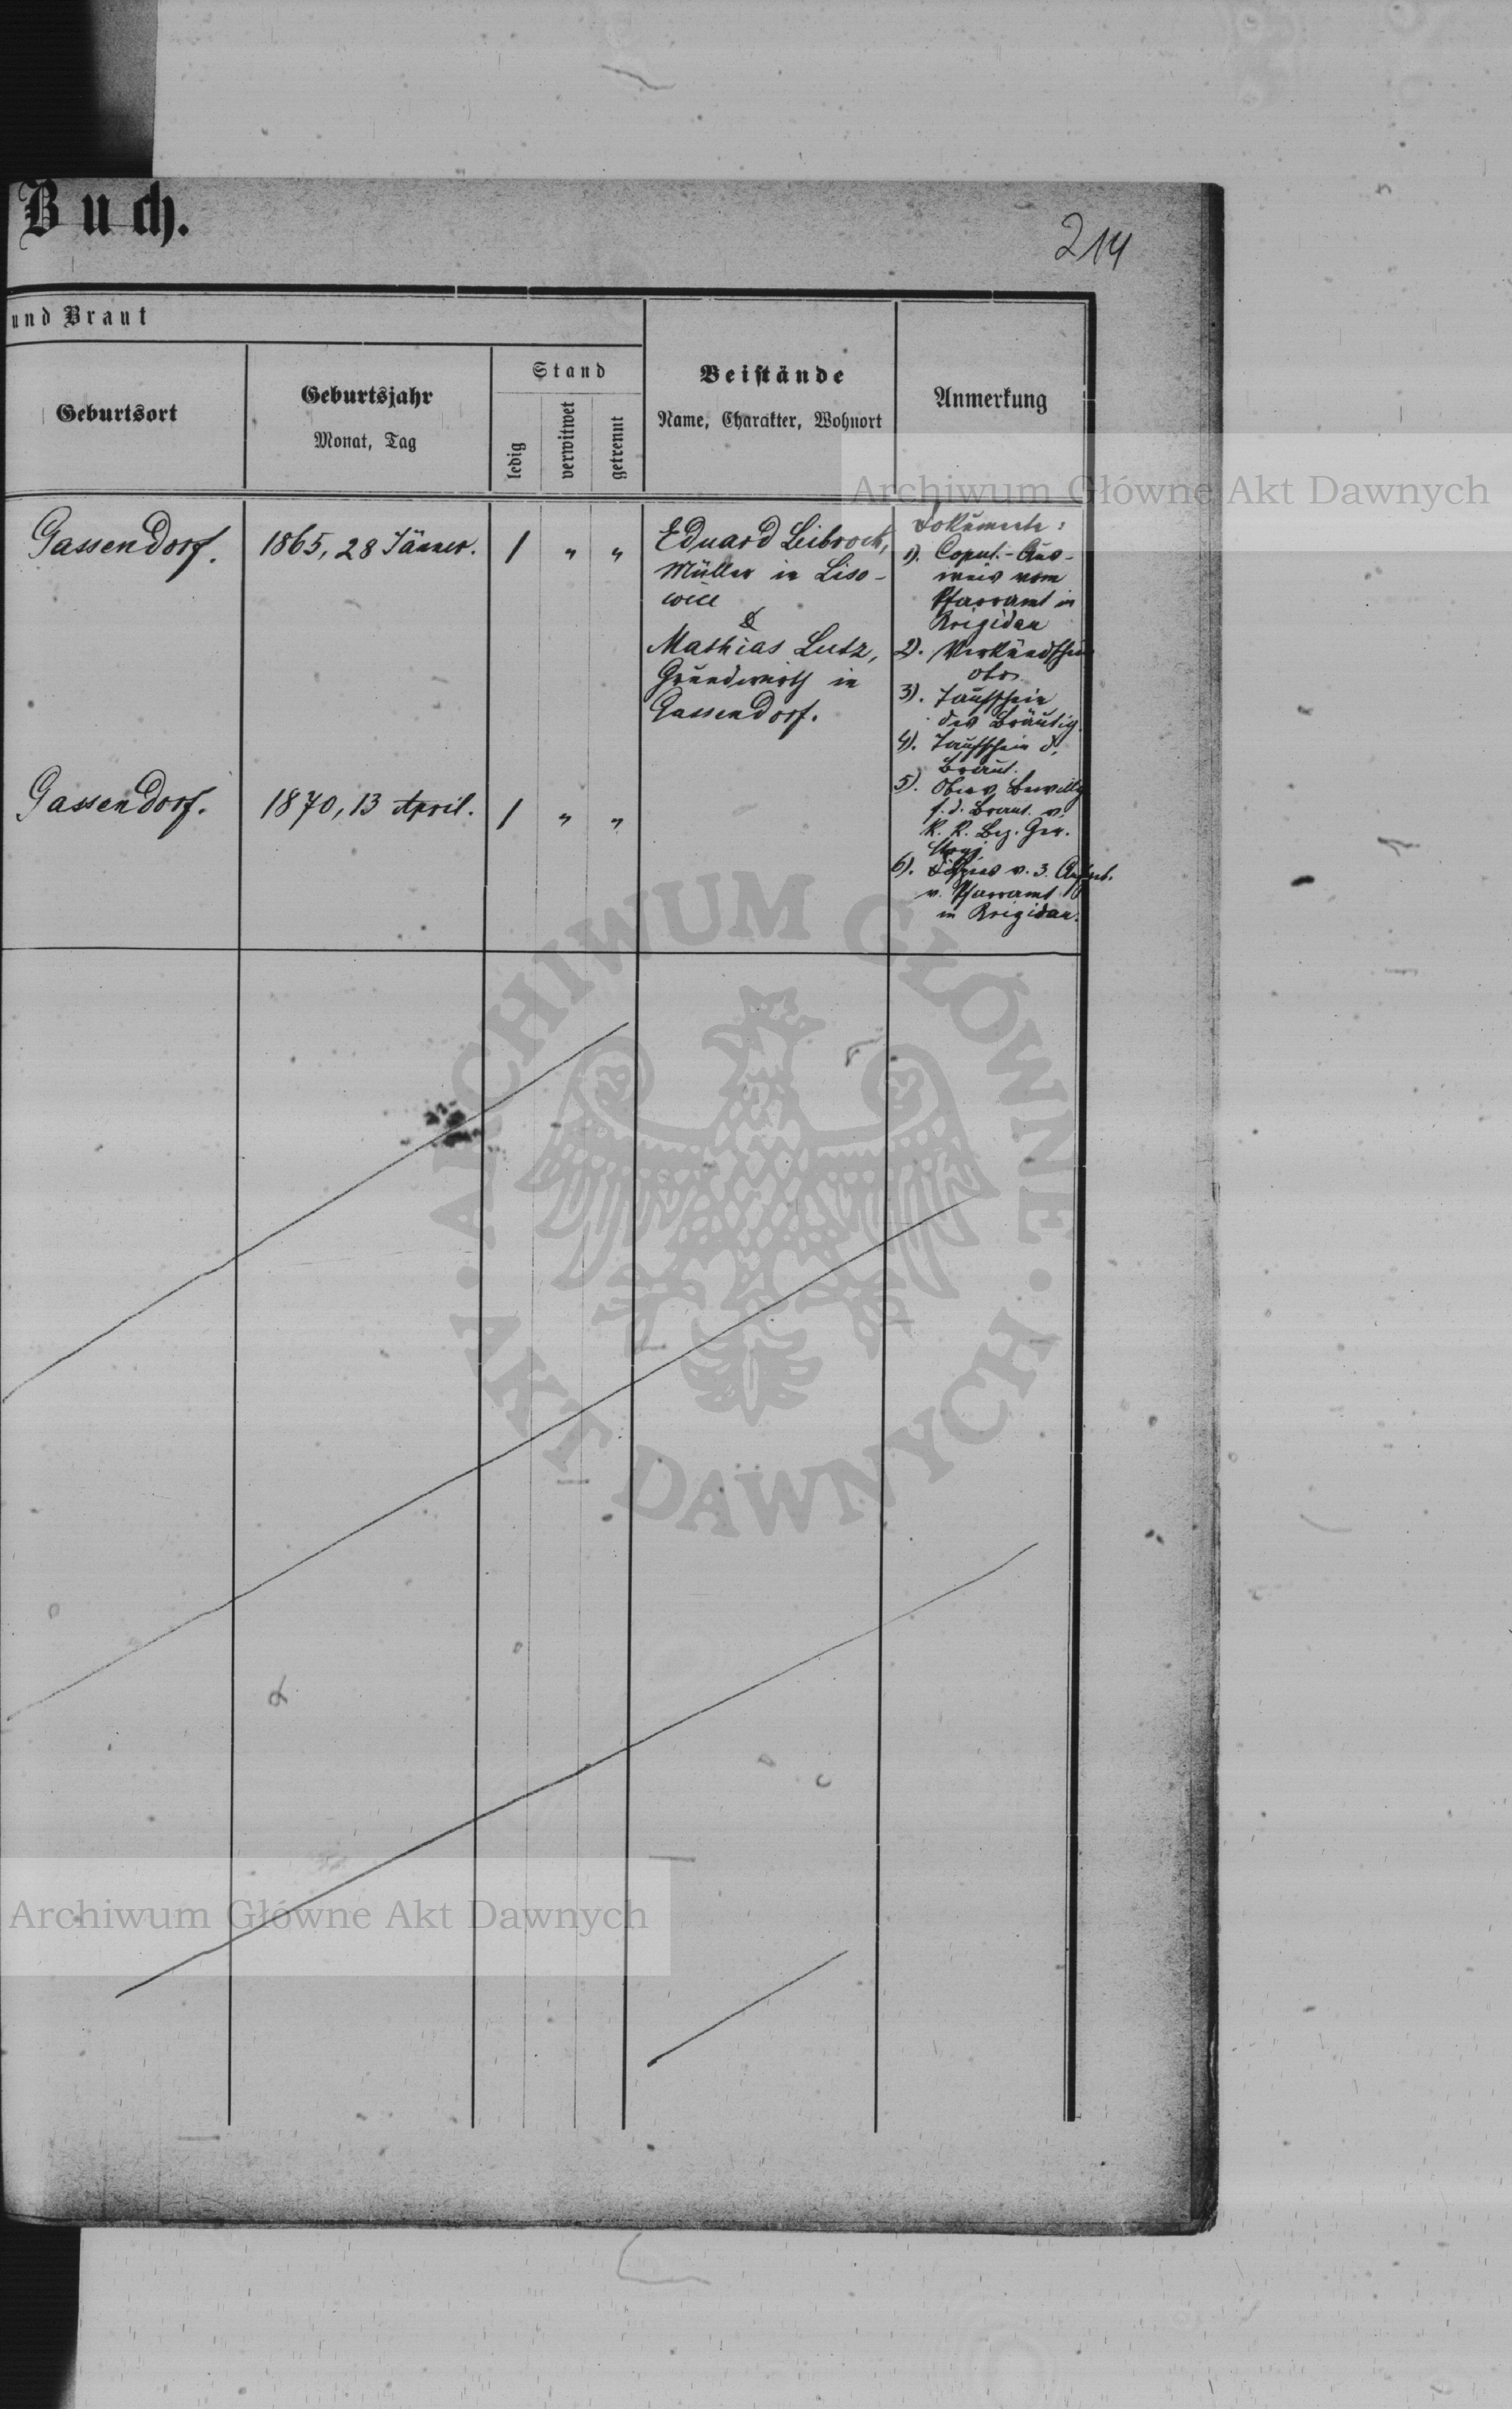 Buch.
214
und Braut
Geburtsort
Geburtsjahr
Monat, Tag
Stand
ledig
verwitwet
getrennt
Beistände
Name, Charakter, Wohnort
Anmerkung
Archiwum Główne Akt Dawnych
Gassendorf.
1865, 28 Jänner.
1 " "
Eduard Leibrock,
Müller in Liso-
wice
&
Mathias Lutz,
Grundwirth in
Gassendorf.
Dokumente:
1). Copul.-Aus-
weis vom
Pfarramt in
Brigidau
2). Verkündschein
3). Taufschein
des Bräutig.
4). Taufschein d.
Braut.
5). Oberv. Bewillg
f. d. Braut. v.
K. K. Bez. Ger.
Stryj
6). v. 3. Aufgeb.
v. Pfarramt
in Brigidau.
Gassendorf.
1870, 13 April.
1 " "
ARCHIWUM GŁÓWNE
AKT DAWNYCH
Archiwum Główne Akt Dawnych